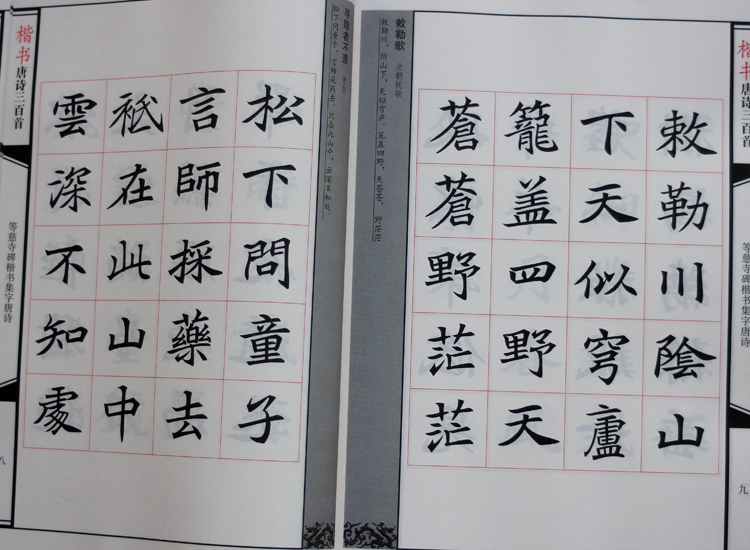 楷书唐诗三百首
等慈寺碑楷书集字唐诗
八
寻隐者不遇 贾岛
松下问童子，言师采药去。只在此山中，云深不知处。
松下問童子
言師採藥去
祗在此山中
雲深不知處
敕勒歌 北朝民歌
敕勒川，阴山下。天似穹庐。笼盖四野，天苍苍，野茫茫
敕勒川陰山
下天似穹廬
籠盖四野天
蒼蒼野茫茫
楷书唐诗三百首
等慈寺碑楷书集字唐诗
九